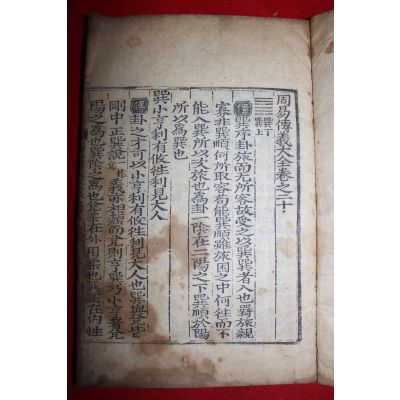 周易傳義大全卷之二十
䷸巽下巽上
傳巽序卦旅而无所容故受之以巽巽者入也羇旅親
寡非巽順何所取容苟能巽順雖旅困之中何徃而不
能入巽所以次旅也爲卦一陰在二陽之下巽順於陽
所以爲巽也
巽小亨利有攸徃利見大人
傳卦之才可以小亨利有攸徃利見大人也巽與兌皆
剛中正巽說義亦相類而兌則亨巽乃小亨者兌
陽之爲也巽陰之爲也兌柔在外用柔也巽柔在內性